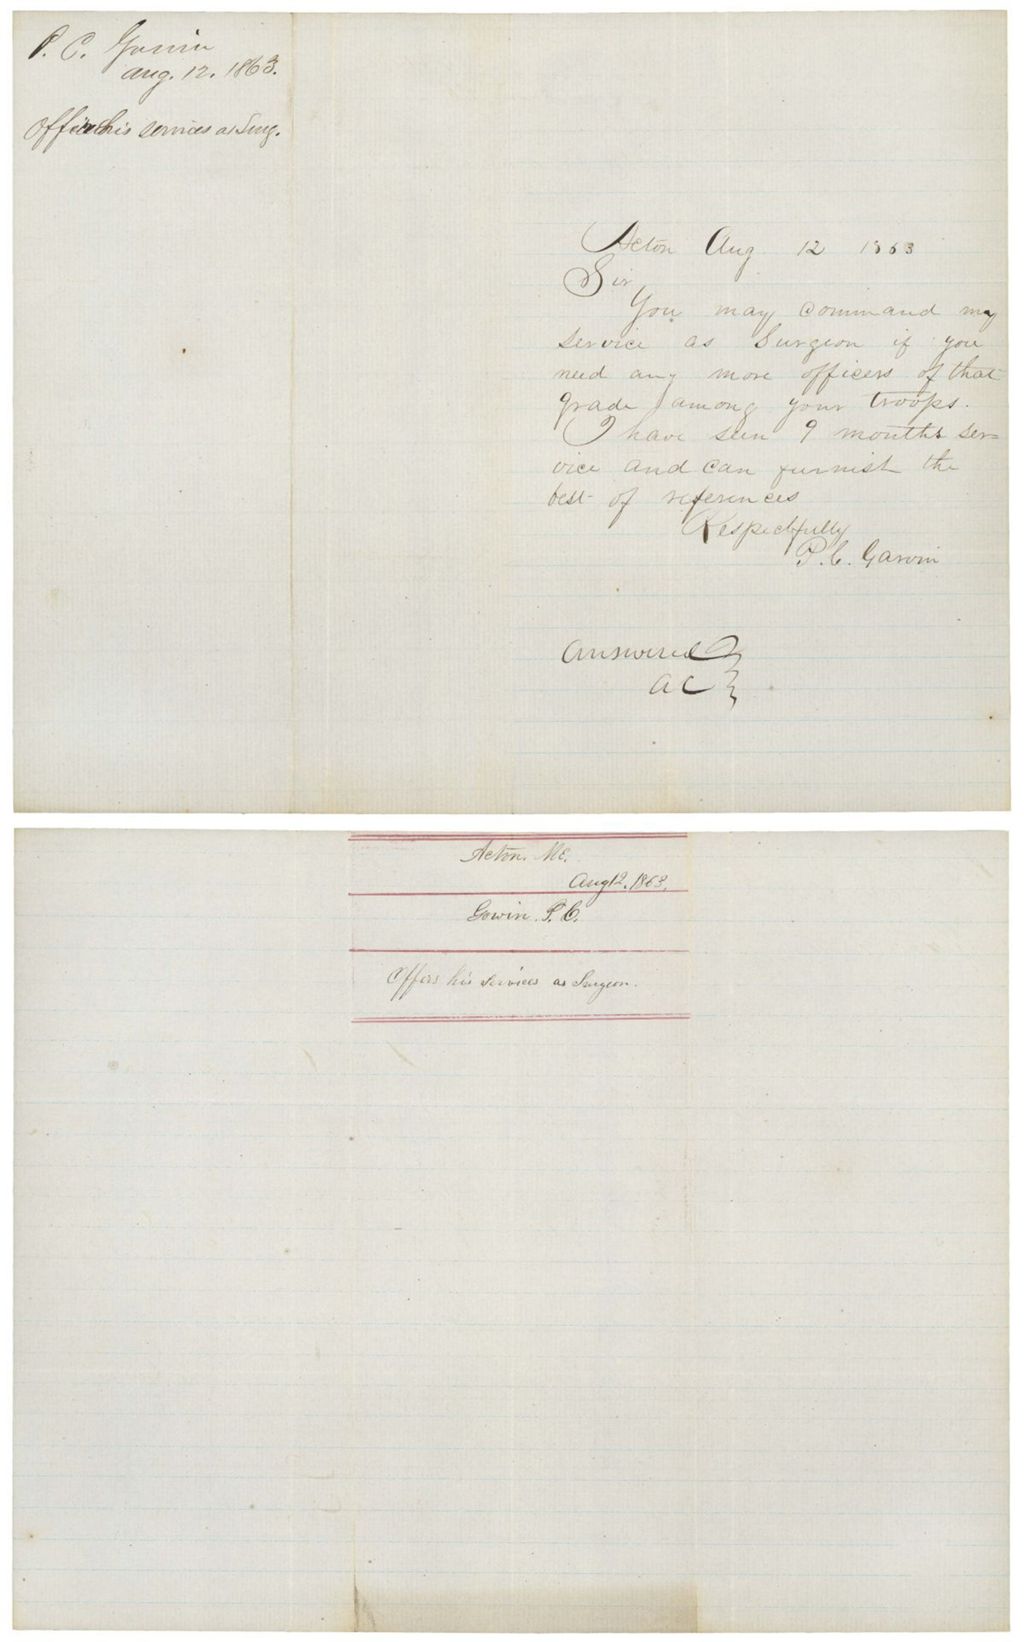 P. C. Gowin
Aug. 12. 1863.
Offers his services as Surg.
Acton Aug 12 1863
Sir
You may command my
service as Surgeon if you
need any more officers of that
grade among your troops.
I have seen 9 months ser-
vice and can furnish the
best of references
Respectfully
P. C. Garvin
Answered
A C
Acton. Me.
Aug 12. 1863.
Gowin. P. C.
Offers his services as Surgeon.